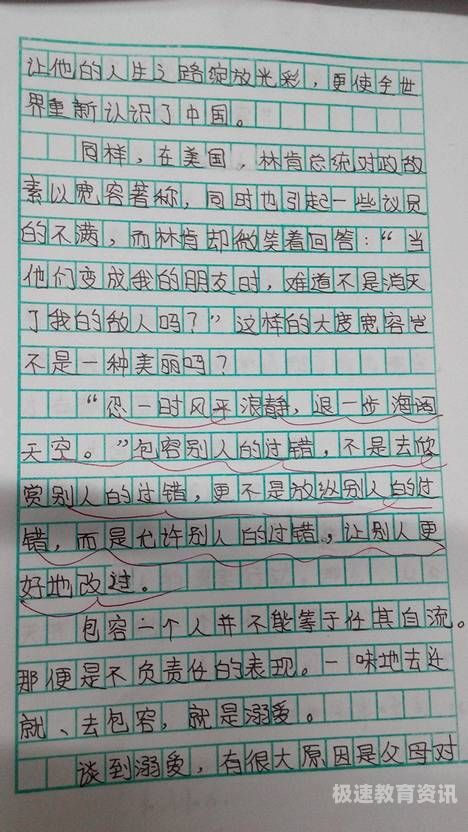 让他的人生之路绽放光彩，更使全世
界重新认识了中国。
同样，在美国，林肯总统对政敌
素以宽容著称，同时也引起一些议员
的不满，而林肯却微笑着回答：“当
他们变成我的朋友时，难道不是消灭
了我的敌人吗？”这样的大度宽容岂
不是一种美丽吗？
“忍一时风平浪静，退一步海阔
天空。”包容别人的过错，不是去欣
赏别人的过错，更不是放纵别人的过
错，而是允许别人的过错，让别人更
好地改过。
包容一个人并不能等于任其自流。
那便是不负责任的表现。一味地去迁
就、去包容，就是溺爱。
谈到溺爱，有很大原因是父母对
极速教育资讯